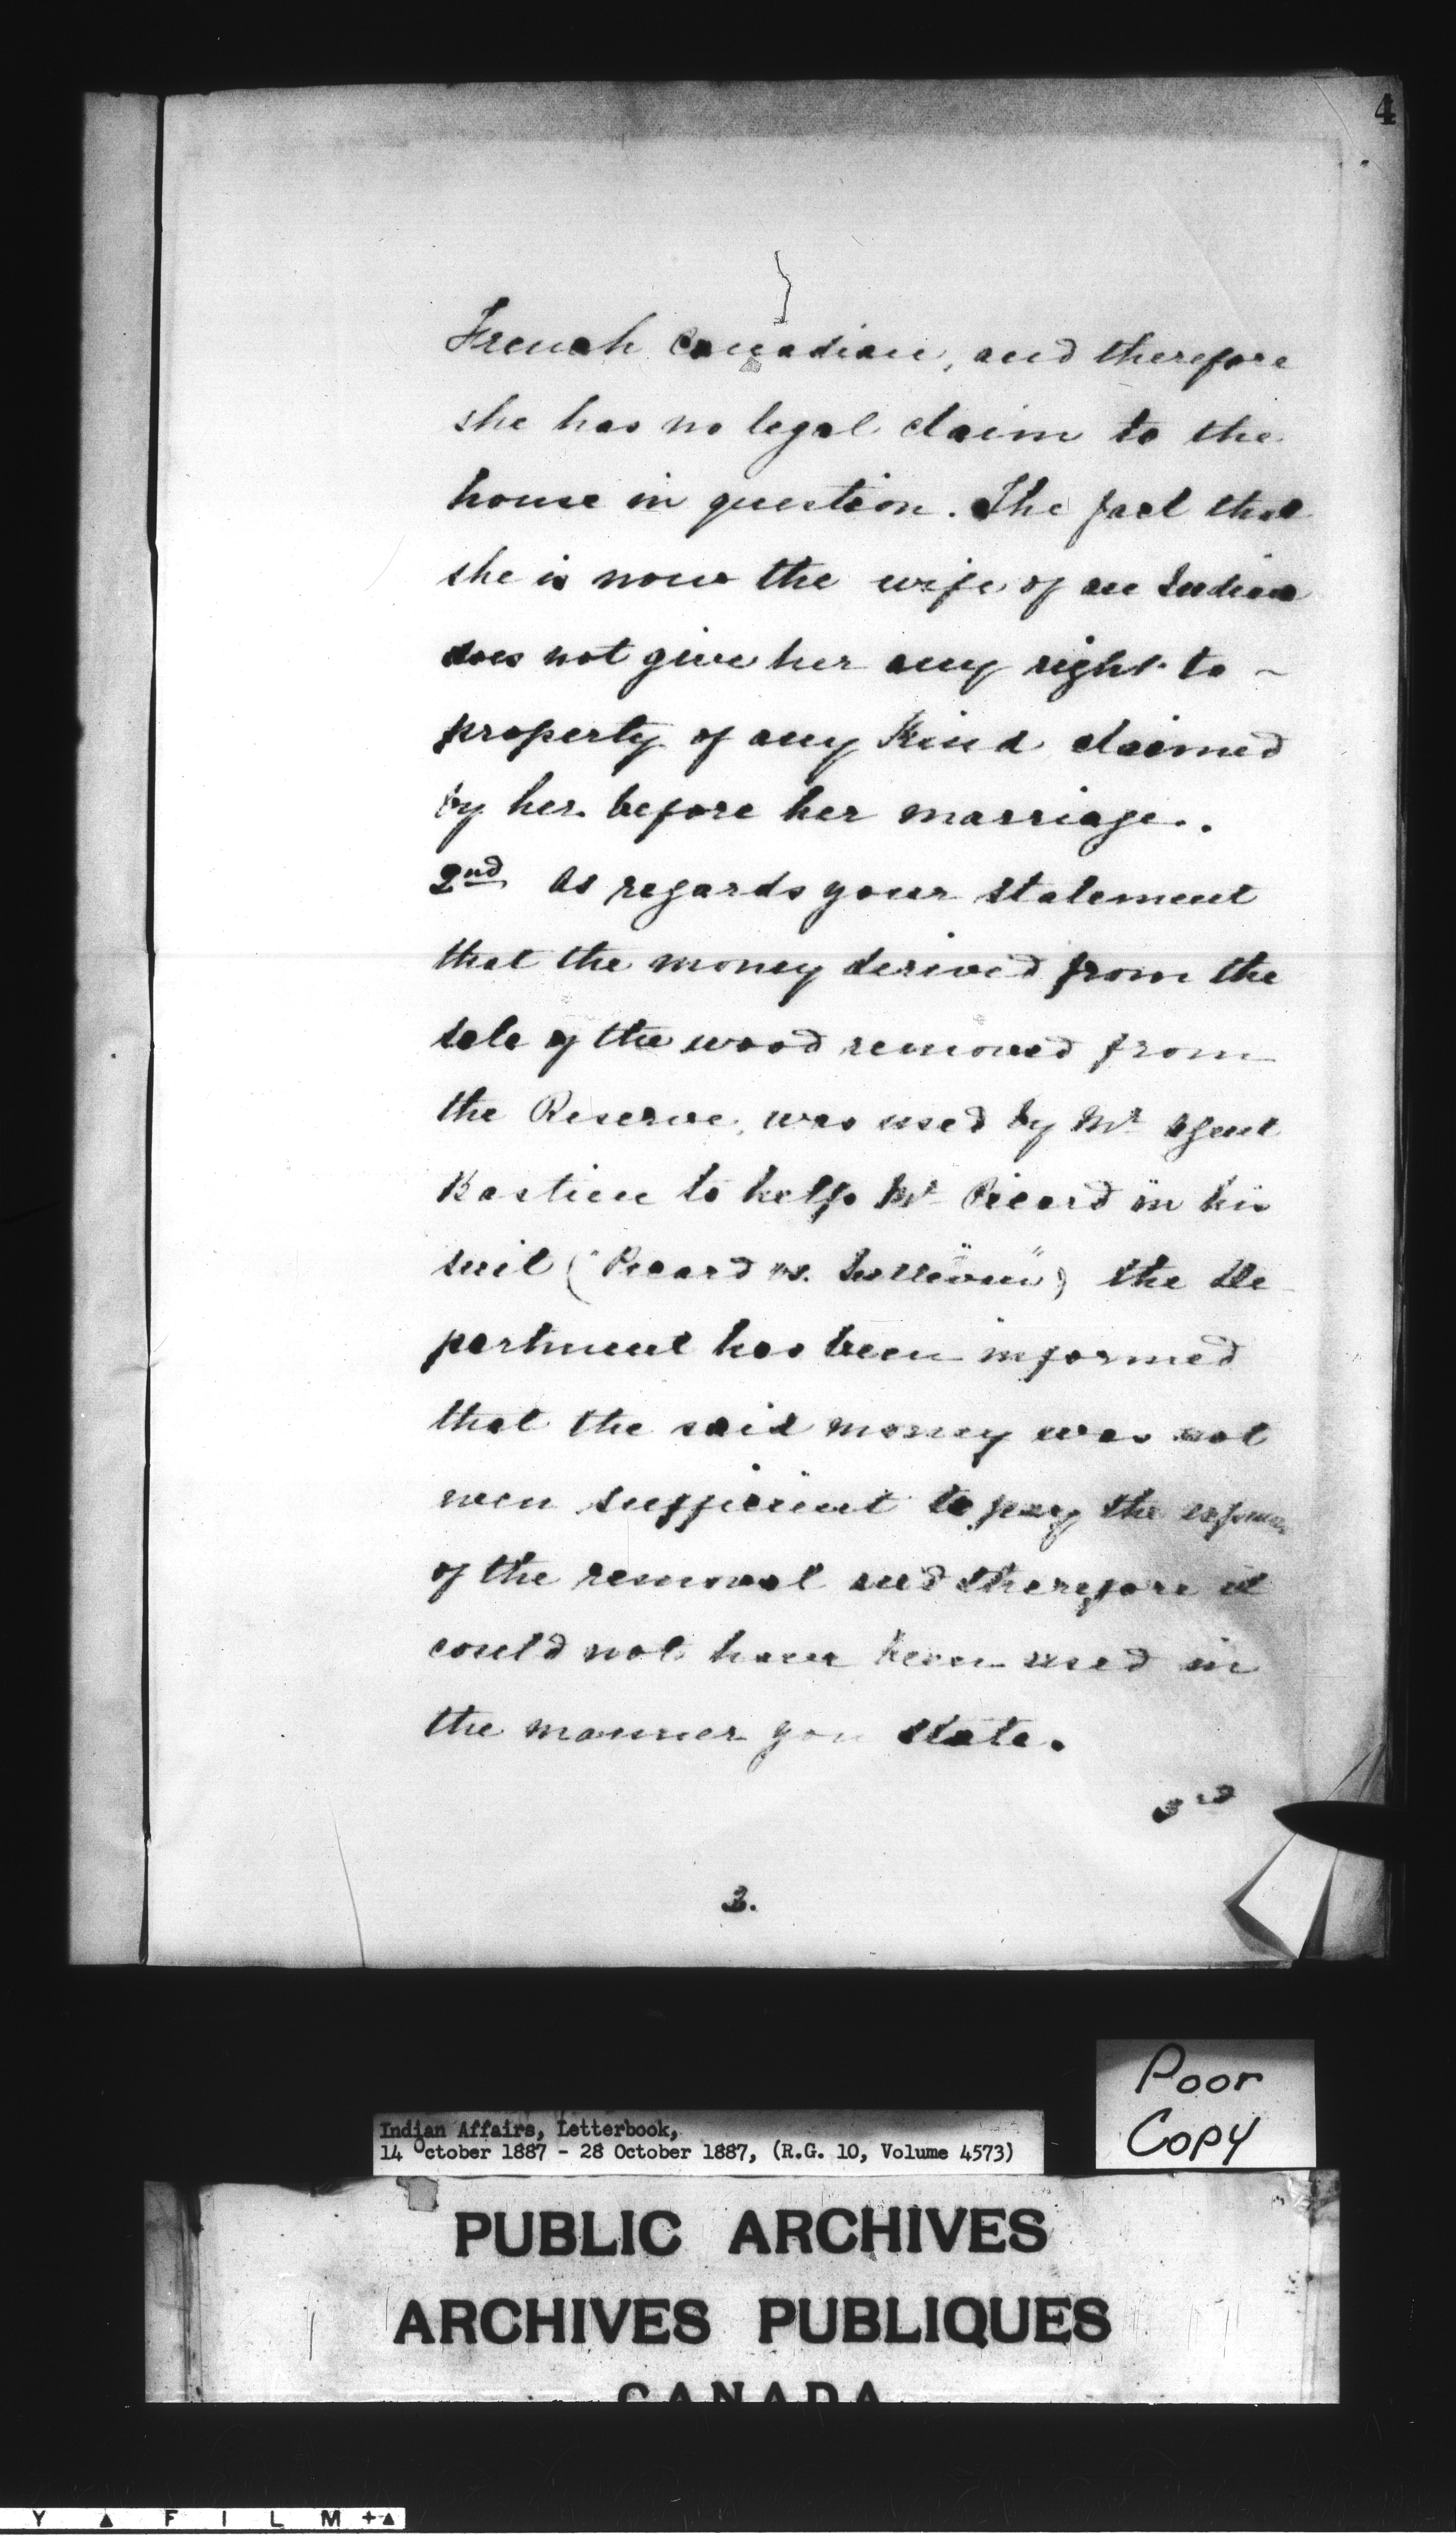 4
French Canadian, and therefore
she has no legal claim to the
house in question. The fact that
she is now the wife of an Indian
does not give her any right to
property of any Kind claimed
by her before her marriage.
2nd As regards your statement
that the money derived from the
sale of the wood removed from
the Reserve, was used by Mr Agent
Bastien to help Mr Picard in his
suit ("Picard vs. ") the De
partment has been informed
that the said money was not
even sufficient to pay the expenses
of the removal and therefore it
could not have been used in
the manner you state.
3rd
2.
Poor
Copy
Indian Affairs, Letterbook,
14 October 1887 - 28 October 1887, (R.G. 10, Volume 4573)
PUBLIC ARCHIVES
ARCHIVES PUBLIQUES
CANADA
Y ▲ F I L M +▲